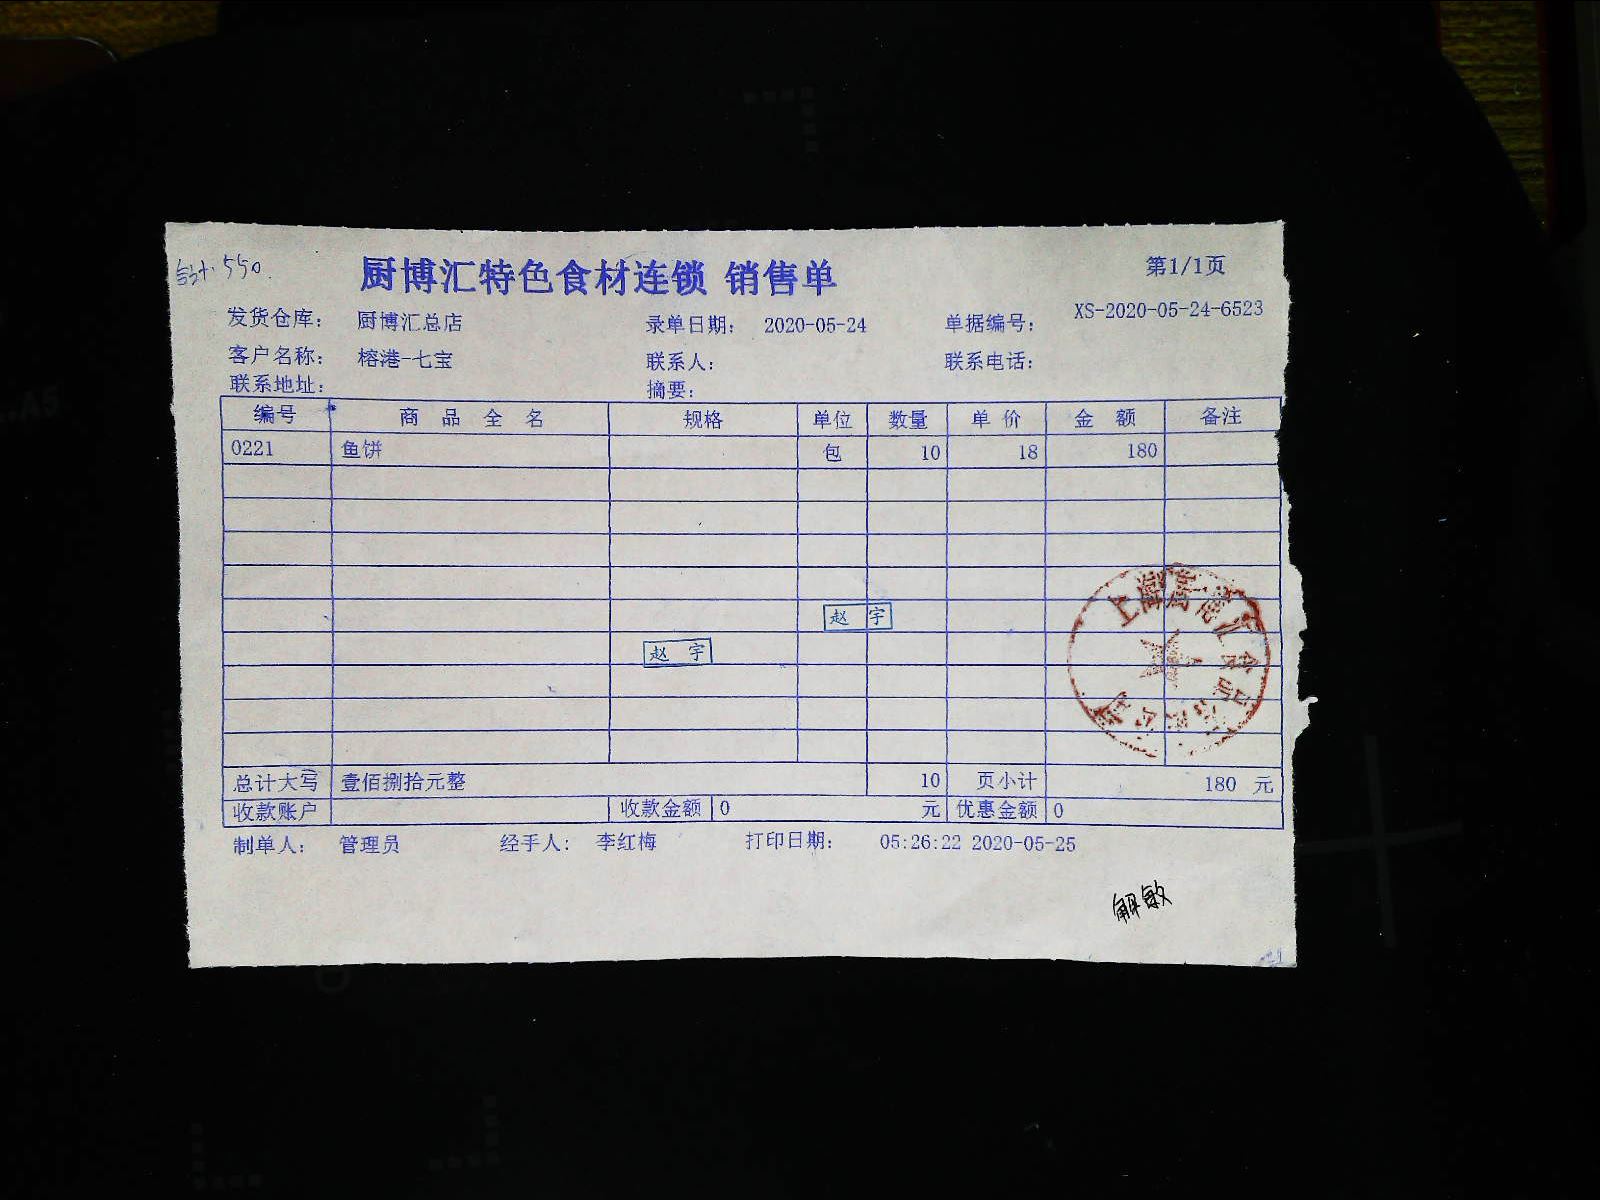 合计.550.
厨博汇特色食材连锁 销售单
第1/1页
发货仓库： 厨博汇总店 录单日期： 2020-05-24 单据编号： XS-2020-05-24-6523
客户名称： 榕港-七宝 联系人： 联系电话：
联系地址： 摘要：
编号 商品全名 规格 单位 数量 单价 金额 备注
0221 鱼饼 包 10 18 180
赵宇
赵宇
总计大写 壹佰捌拾元整 10 页小计 180 元
收款账户 收款金额 0 元 优惠金额 0
制单人： 管理员 经手人： 李红梅 打印日期： 05:26:22 2020-05-25
解敏